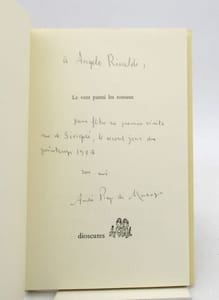 à Angelo Rinaldi,
Le vent parmi les roseaux
pour fêter sa première visite
rue de Sévigné, le second jour du
printemps
son ami
André Pieyre de Mandiargues
dioscures